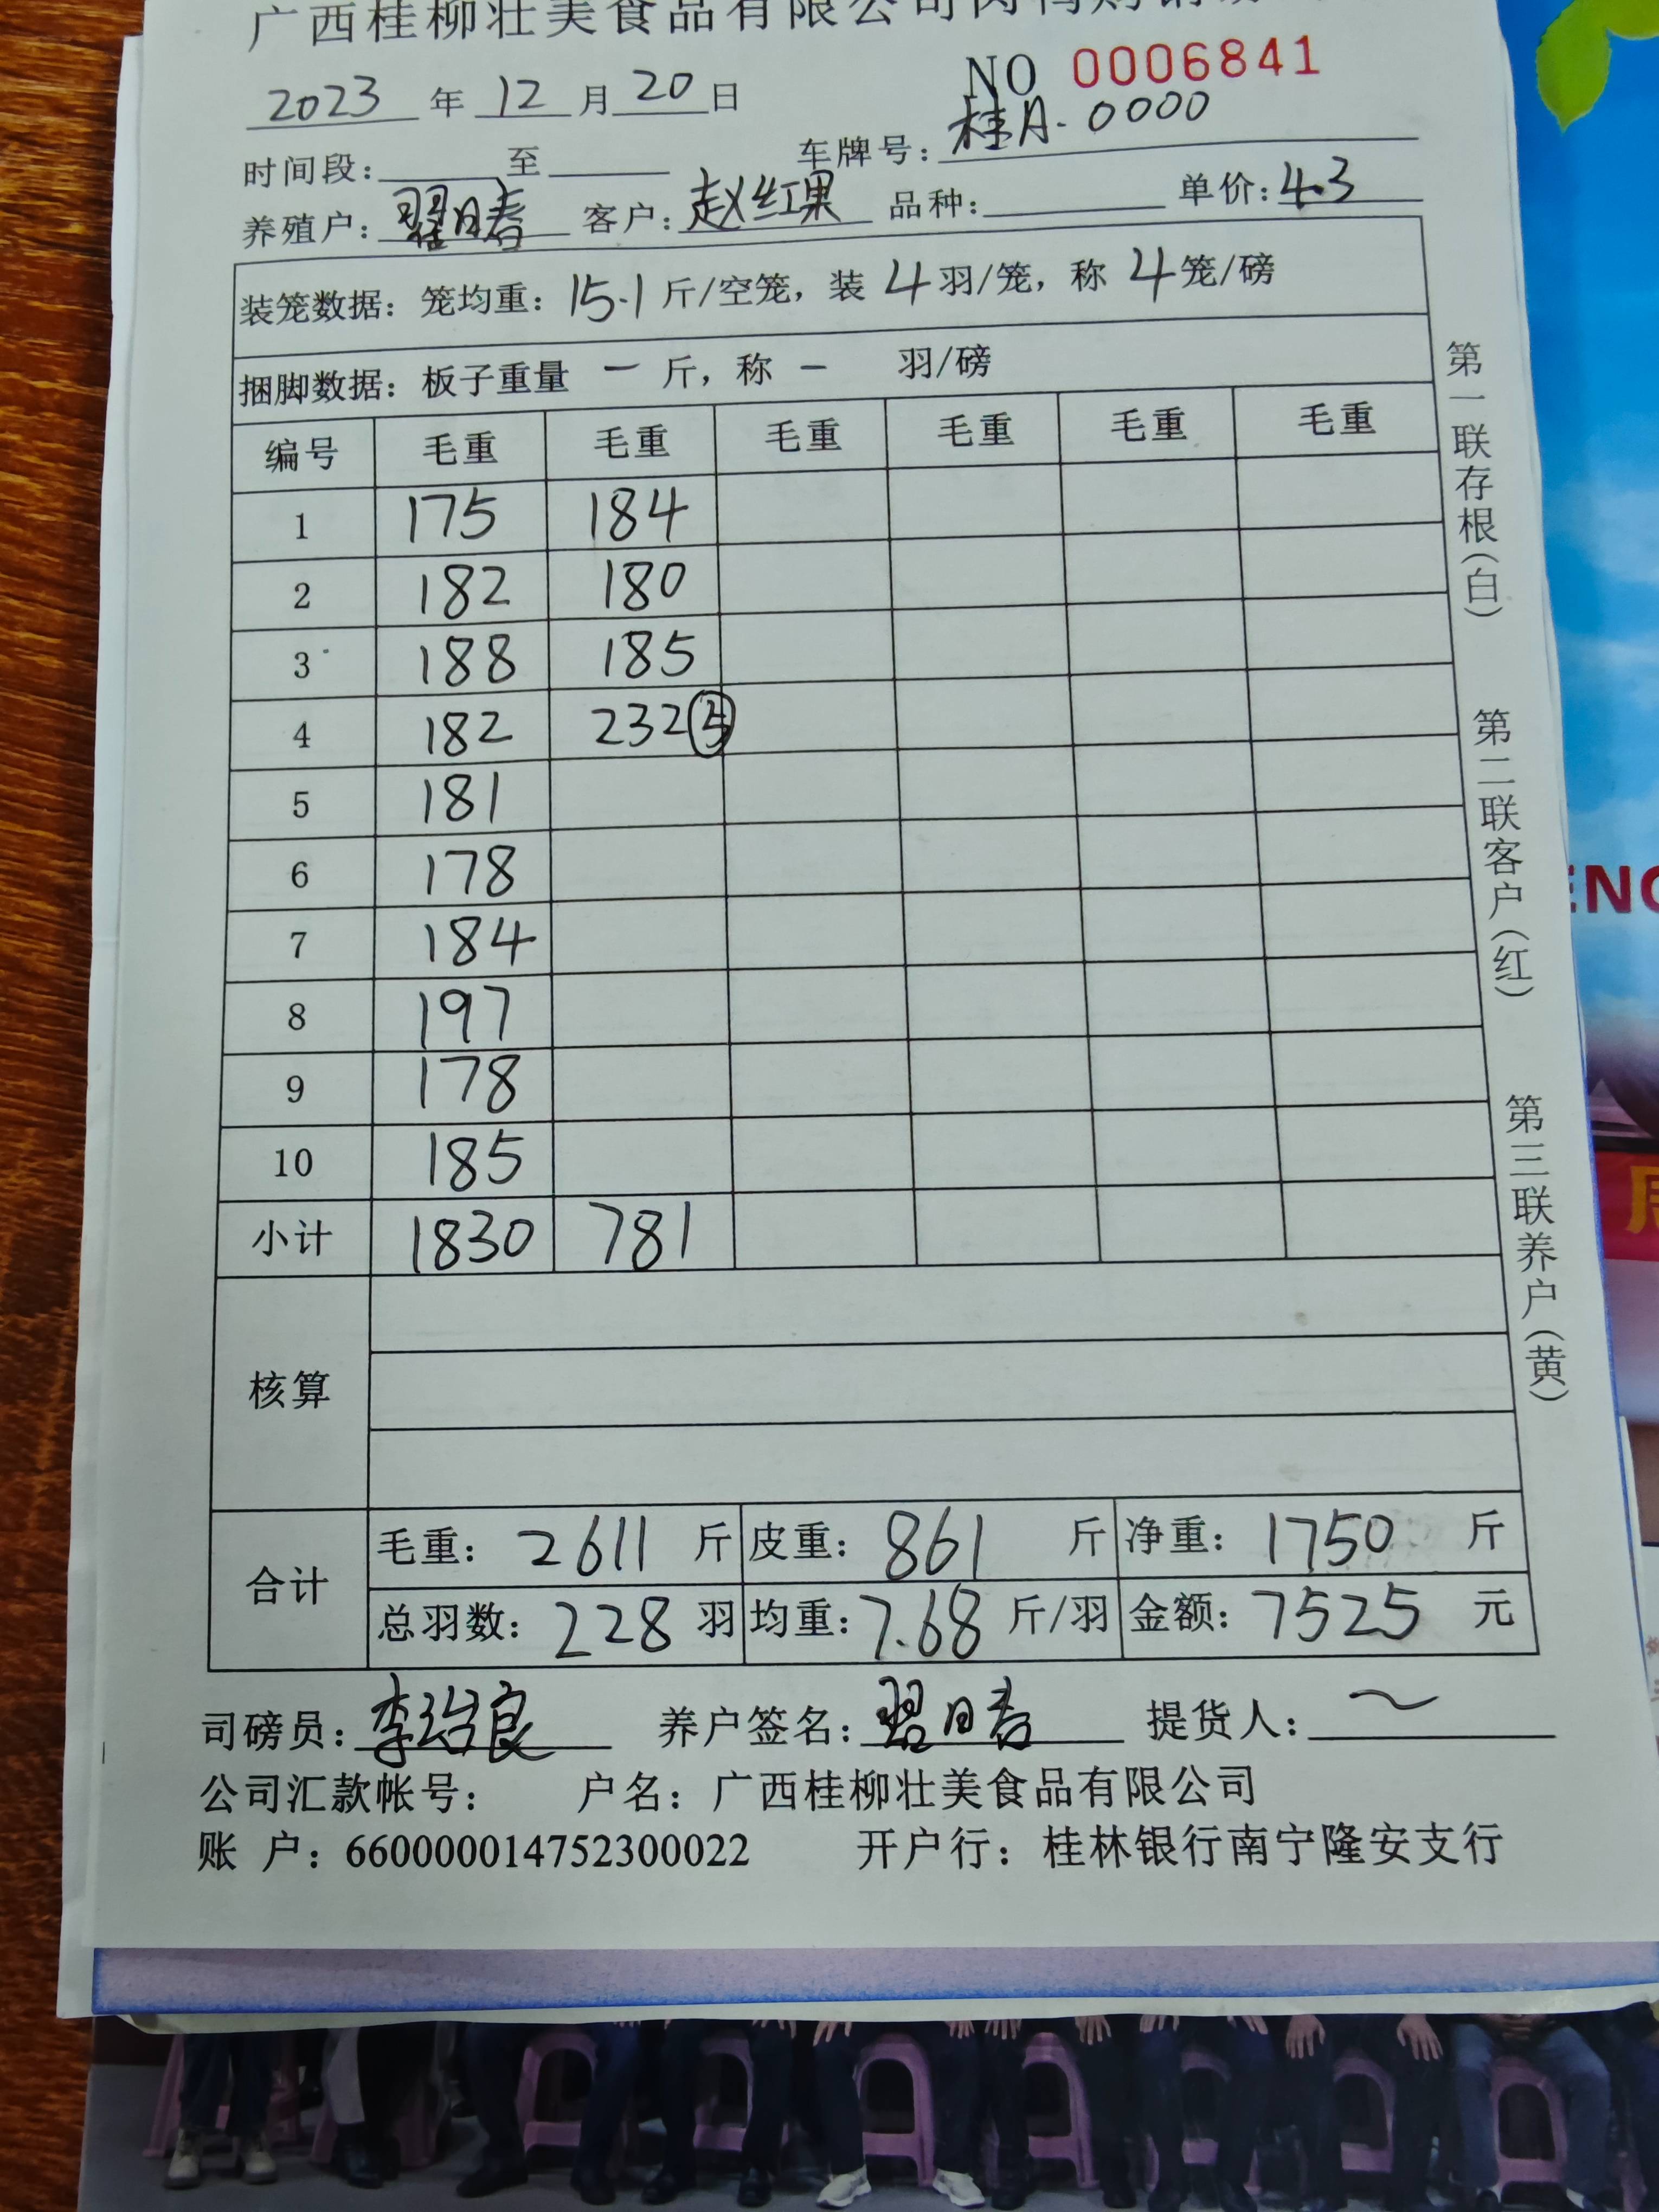 广西桂柳壮美食品有限公司肉鸭购销
2023 年 12 月 20 日
NO 0006841
时间段: 至 车牌号: 桂A·0000
养殖户: 翟月春 客户: 赵红果 品种: 单价: 4.3
装笼数据: 笼均重: 15.1 斤/空笼, 装 4 羽/笼, 称 4 笼/磅
捆脚数据: 板子重量 一 斤, 称 一 羽/磅
编号 毛重 毛重 毛重 毛重 毛重 毛重
1 175 184
2 182 180
3 188 185
4 182 232 ⑤
5 181
6 178
7 184
8 197
9 178
10 185
小计 1830 781
核算
合计
毛重: 2611 斤 皮重: 861 斤 净重: 1750 斤
总羽数: 228 羽 均重: 7.68 斤/羽 金额: 7525 元
司磅员: 李 良 养户签名: 月春 提货人:
公司汇款帐号: 户名: 广西桂柳壮美食品有限公司
账 户: 660000014752300022 开户行: 桂林银行南宁隆安支行
第一联存根(白)
第二联客户(红)
第三联养户(黄)
ENG